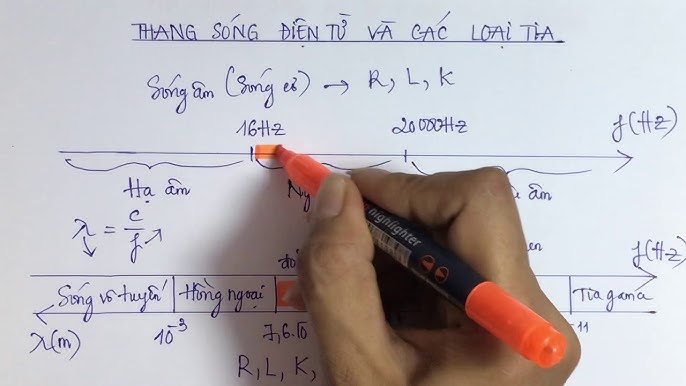 THANG SÓNG ĐIỆN TỪ VÀ CÁC LOẠI TIA
Sóng âm (Sóng cơ) → R, L, K
16Hz 20000Hz f(Hz)
Hạ âm Ng âm
λ = c/f
đỏ f(Hz)
Sóng vô tuyến Hồng ngoại Tia gama
λ(m) 10⁻³ 7,6.10 11
R, L, K,
highlighter